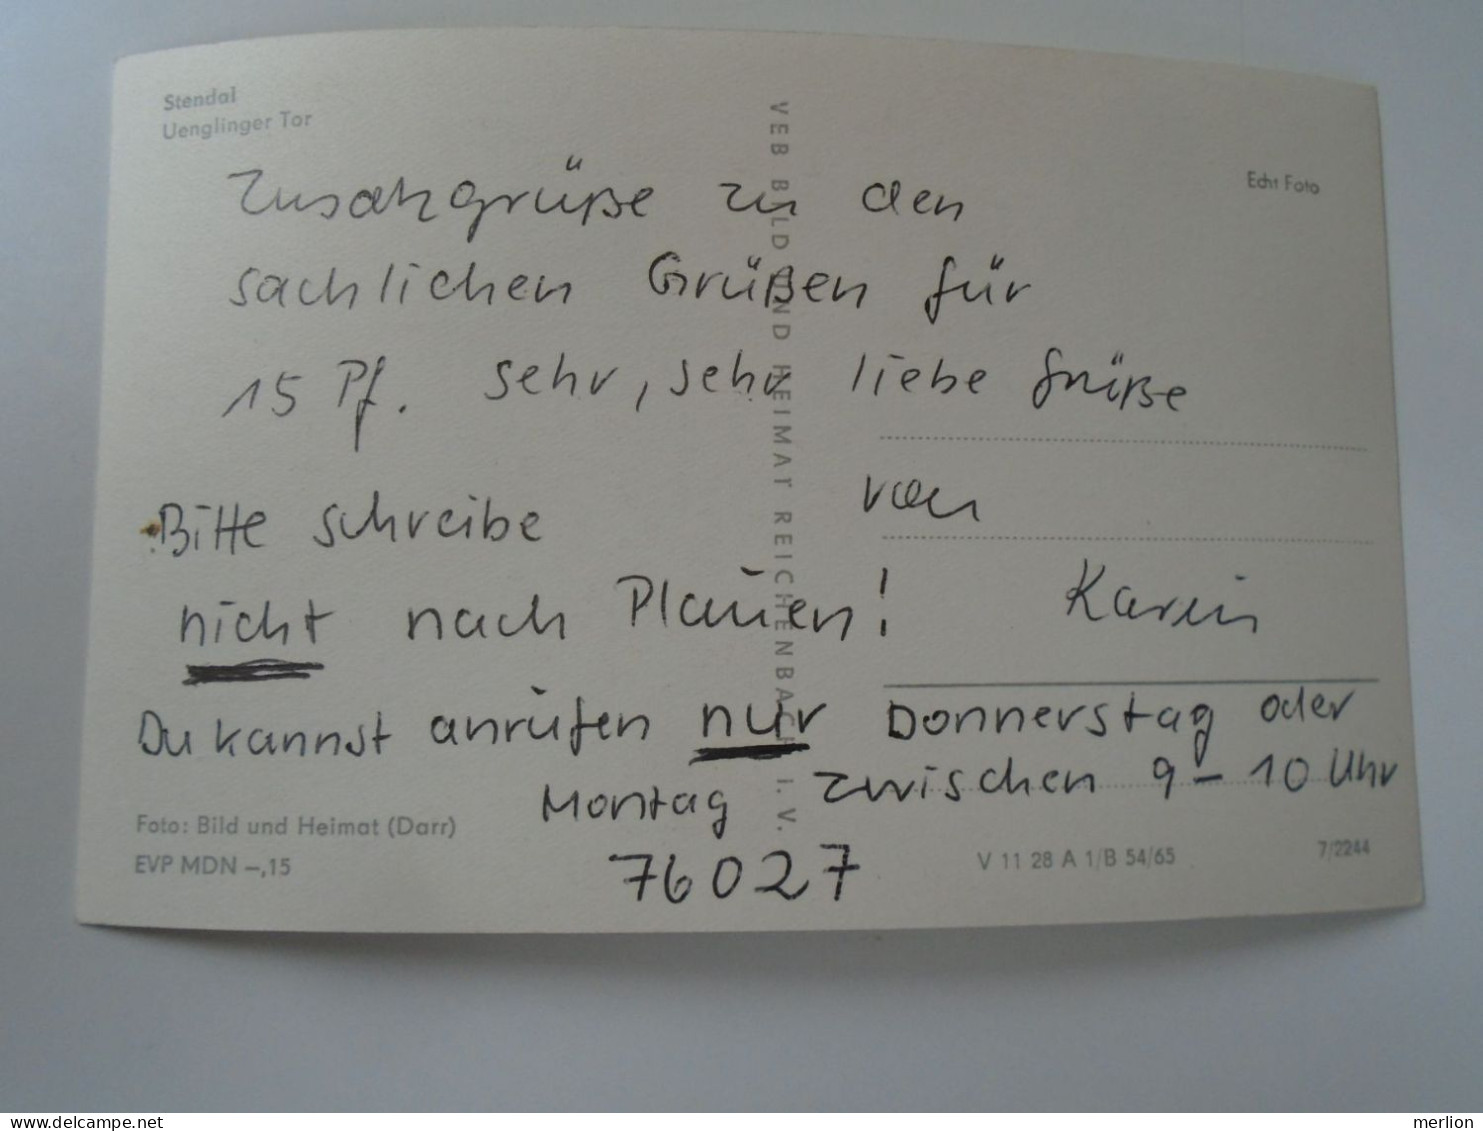 Stendal
Uenglinger Tor
Echt Foto
VEB BILD UND HEIMAT REICHENBACH I. V.
Zusatzgrüße zu den
sachlichen Grüßen für
15 Pf. sehr, sehr liebe Grüße
von
Karin
Bitte schreibe
nicht nach Plauen!
Du kannst anrufen nur Donnerstag oder
Montag zwischen 9 - 10 Uhr
76027
Foto: Bild und Heimat (Darr)
EVP MDN -,15
V 11 28 A 1/B 54/65
7/2244
delcampe.net
merlion